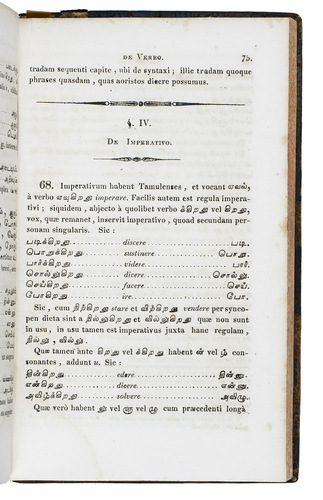 DE VERBO. 75.
tradam sequenti capite, ubi de syntaxi; illic tradam quoque
phrases quasdam, quas aoristos dicere possumus.
§. IV.
DE IMPERATIVO.
68. Imperativum habent Tamulenses, et vocant ஏவல்,
à verbo ஏவுகிறது imperare. Facilis autem est regula impera-
tivi; siquidem, abjecto à quolibet verbo க்கிறது vel கிறது,
vox, quæ remanet, inservit imperativo, quoad secundam per-
sonam singularis. Sic:
படிக்கிறது discere படி.
பொறுக்கிறது sustinere பொறு.
பார்க்கிறது videre பார்.
சொல்லுகிறது dicere சொல்லு.
செய்கிறது facere செய்.
போகிறது ire போ.
Sic, cum நிற்கிறது stare et விற்கிறது vendere per synco-
pen dicta sint a நில்லுகிறது et வில்லுகிறது quæ non sunt
in usu, in usu tamen est imperativus juxta hanc regulam,
நில்லு, வில்லு.
Quæ tamen ante கிறது vel க்கிறது habent ன் vel ழ் con-
sonantes, addunt u. Sic:
தின்கிறது edere தின்னு.
என்கிறது dicere என்னு.
அவிழ்க்கிறது solvere அவிழு.
Quæ verò habent லு vel ளு vel ழு cum præcedenti longâ